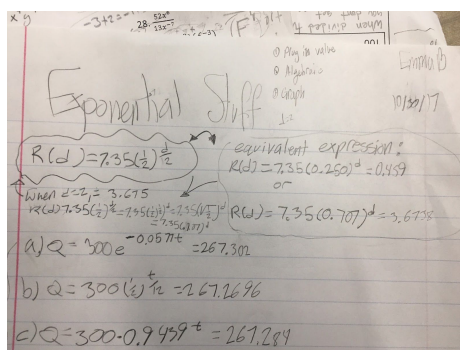 x⁴y
-3+2=
28. 52x⁴
13x⁻⁷
When divided
① Plug in value
② Algebraic
③ Graph
Emma B
10/30/17
Exponential Stuff
d=2
R(d)=7.35(½)^d/2
equivalent expression:
R(d)=7.35(0.250)^d=0.459
or
R(d)=7.35(0.707)^d=3.6738
When d=2, = 3.675
=7.35(.707)^d
a) Q=300e^-0.0577t=267.302
b) Q=300(½)^t/12=267.2696
c) Q=300·0.9439^t=267.284